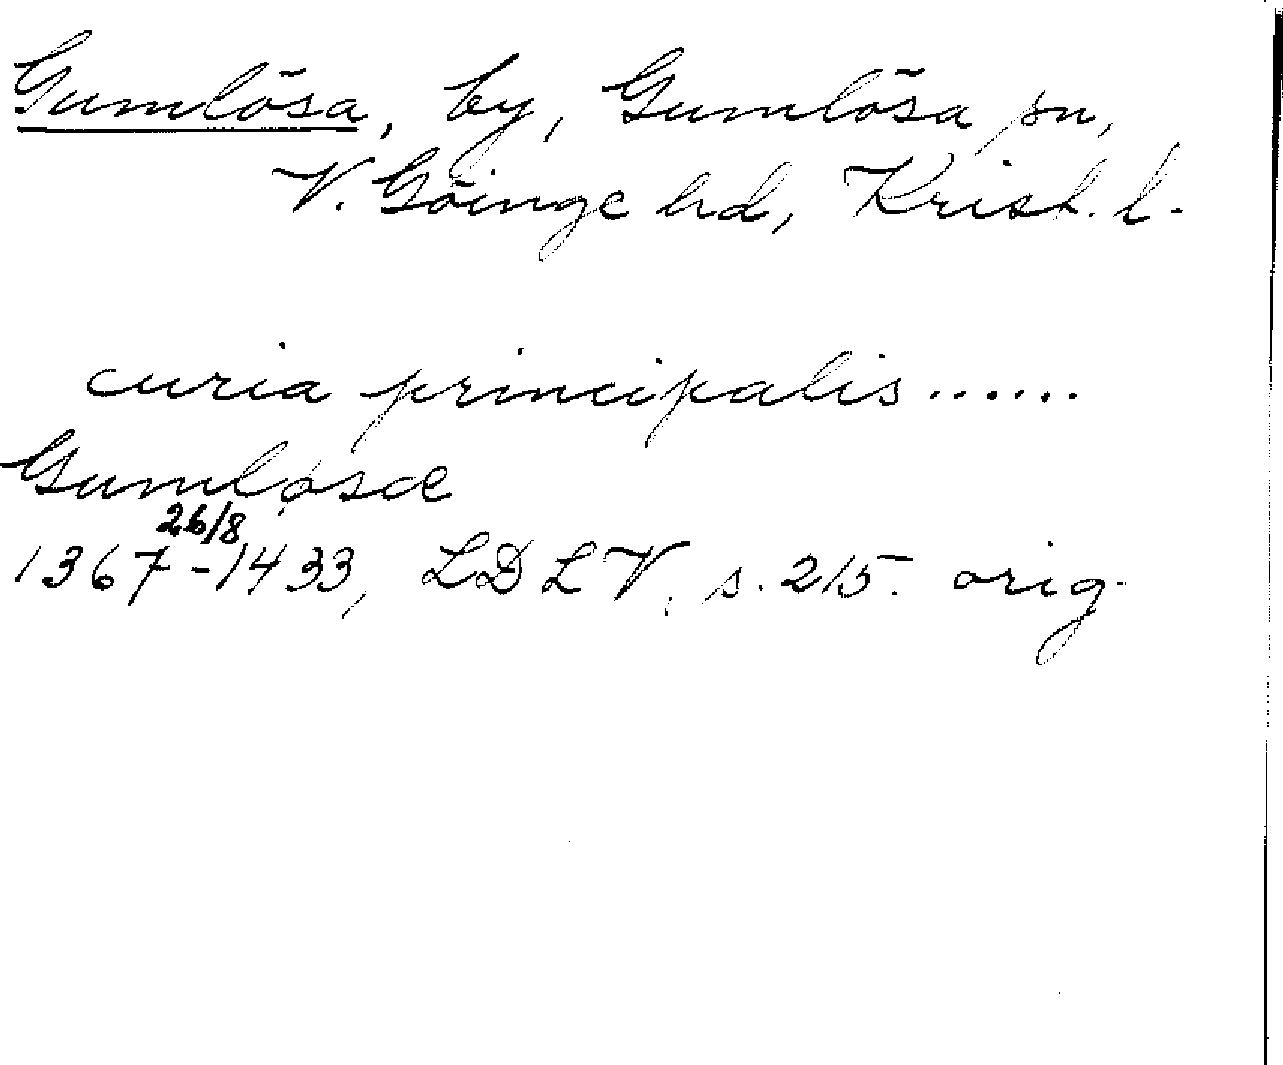 Gumlösa, by, Gumlösa sn,
V. Göinge hd, Krist. l.
curia principalis......
Gumløsæ
26/8
1367-1433, LDLV, s. 215. orig.